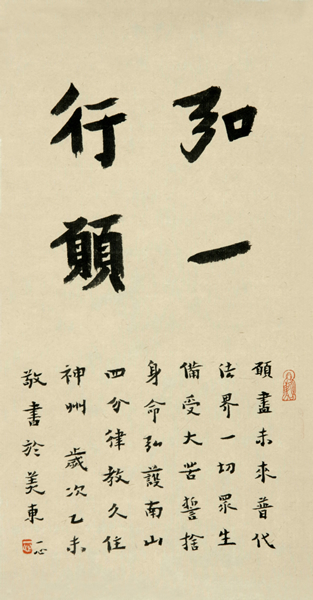 弘一
行願
願盡未來普代
法界一切眾生
備受大苦誓捨
身命弘護南山
四分律教久住
神州 歲次乙未
敬書於美東 一心